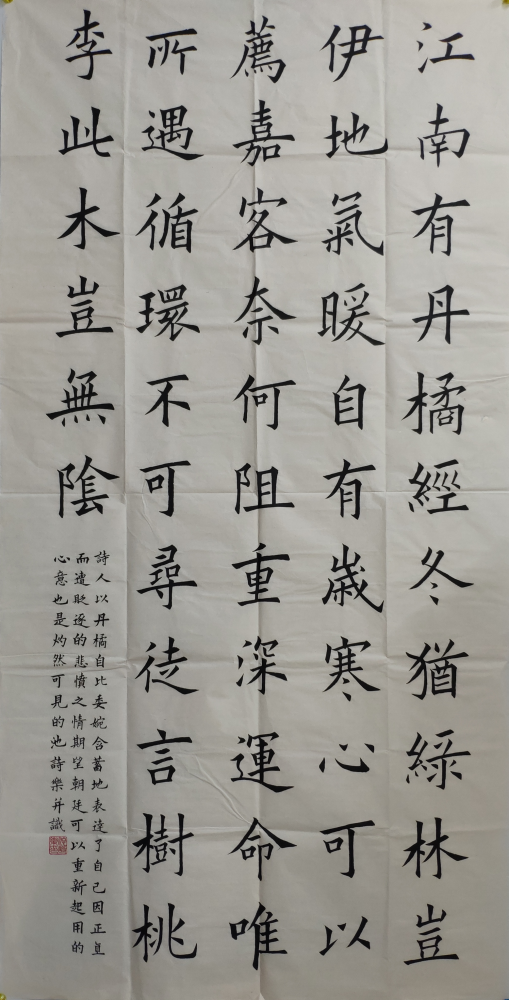 江南有丹橘經冬猶綠林豈
伊地氣暖自有歲寒心可以
薦嘉客奈何阻重深運命唯
所遇循環不可尋徒言樹桃
李此木豈無陰
詩人以丹橘自比委婉含蓄地表達了自己因正直
而遭貶逐的悲憤之情期望朝廷可以重新起用的
心意也是灼然可見的池詩樂并識